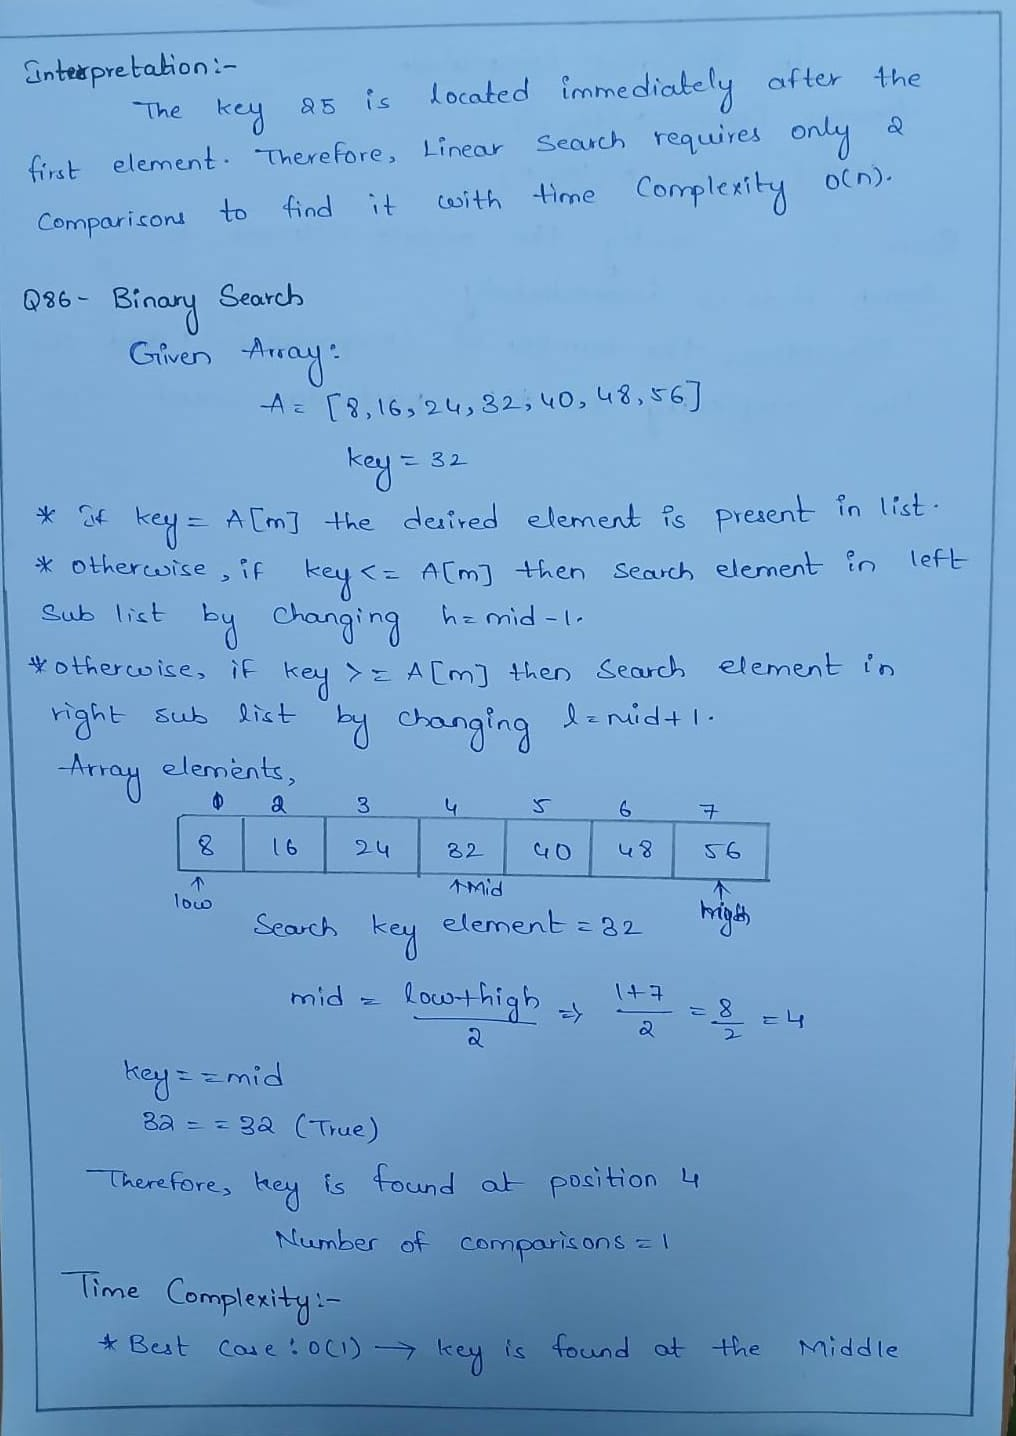 Interpretation:-
The key 25 is located immediately after the
first element. Therefore, Linear Search requires only 2
Comparisons to find it with time Complexity O(n).
Q86- Binary Search
Given Array:
A= [8,16,24,32,40,48,56]
key = 32
* If key = A[m] the desired element is present in list.
* otherwise, if key <= A[m] then search element in left
Sub list by Changing h=mid-1.
* otherwise, if key >= A[m] then Search element in
right sub list by changing l=mid+1.
Array elements,
1 2 3 4 5 6 7
8 16 24 32 40 48 56
↑ ↑Mid ↑
low high
Search key element = 32
mid = low+high/2 ⇒ 1+7/2 = 8/2 = 4
key==mid
32 == 32 (True)
Therefore, key is found at position 4
Number of comparisons = 1
Time Complexity:-
* Best Case: O(1) → key is found at the Middle